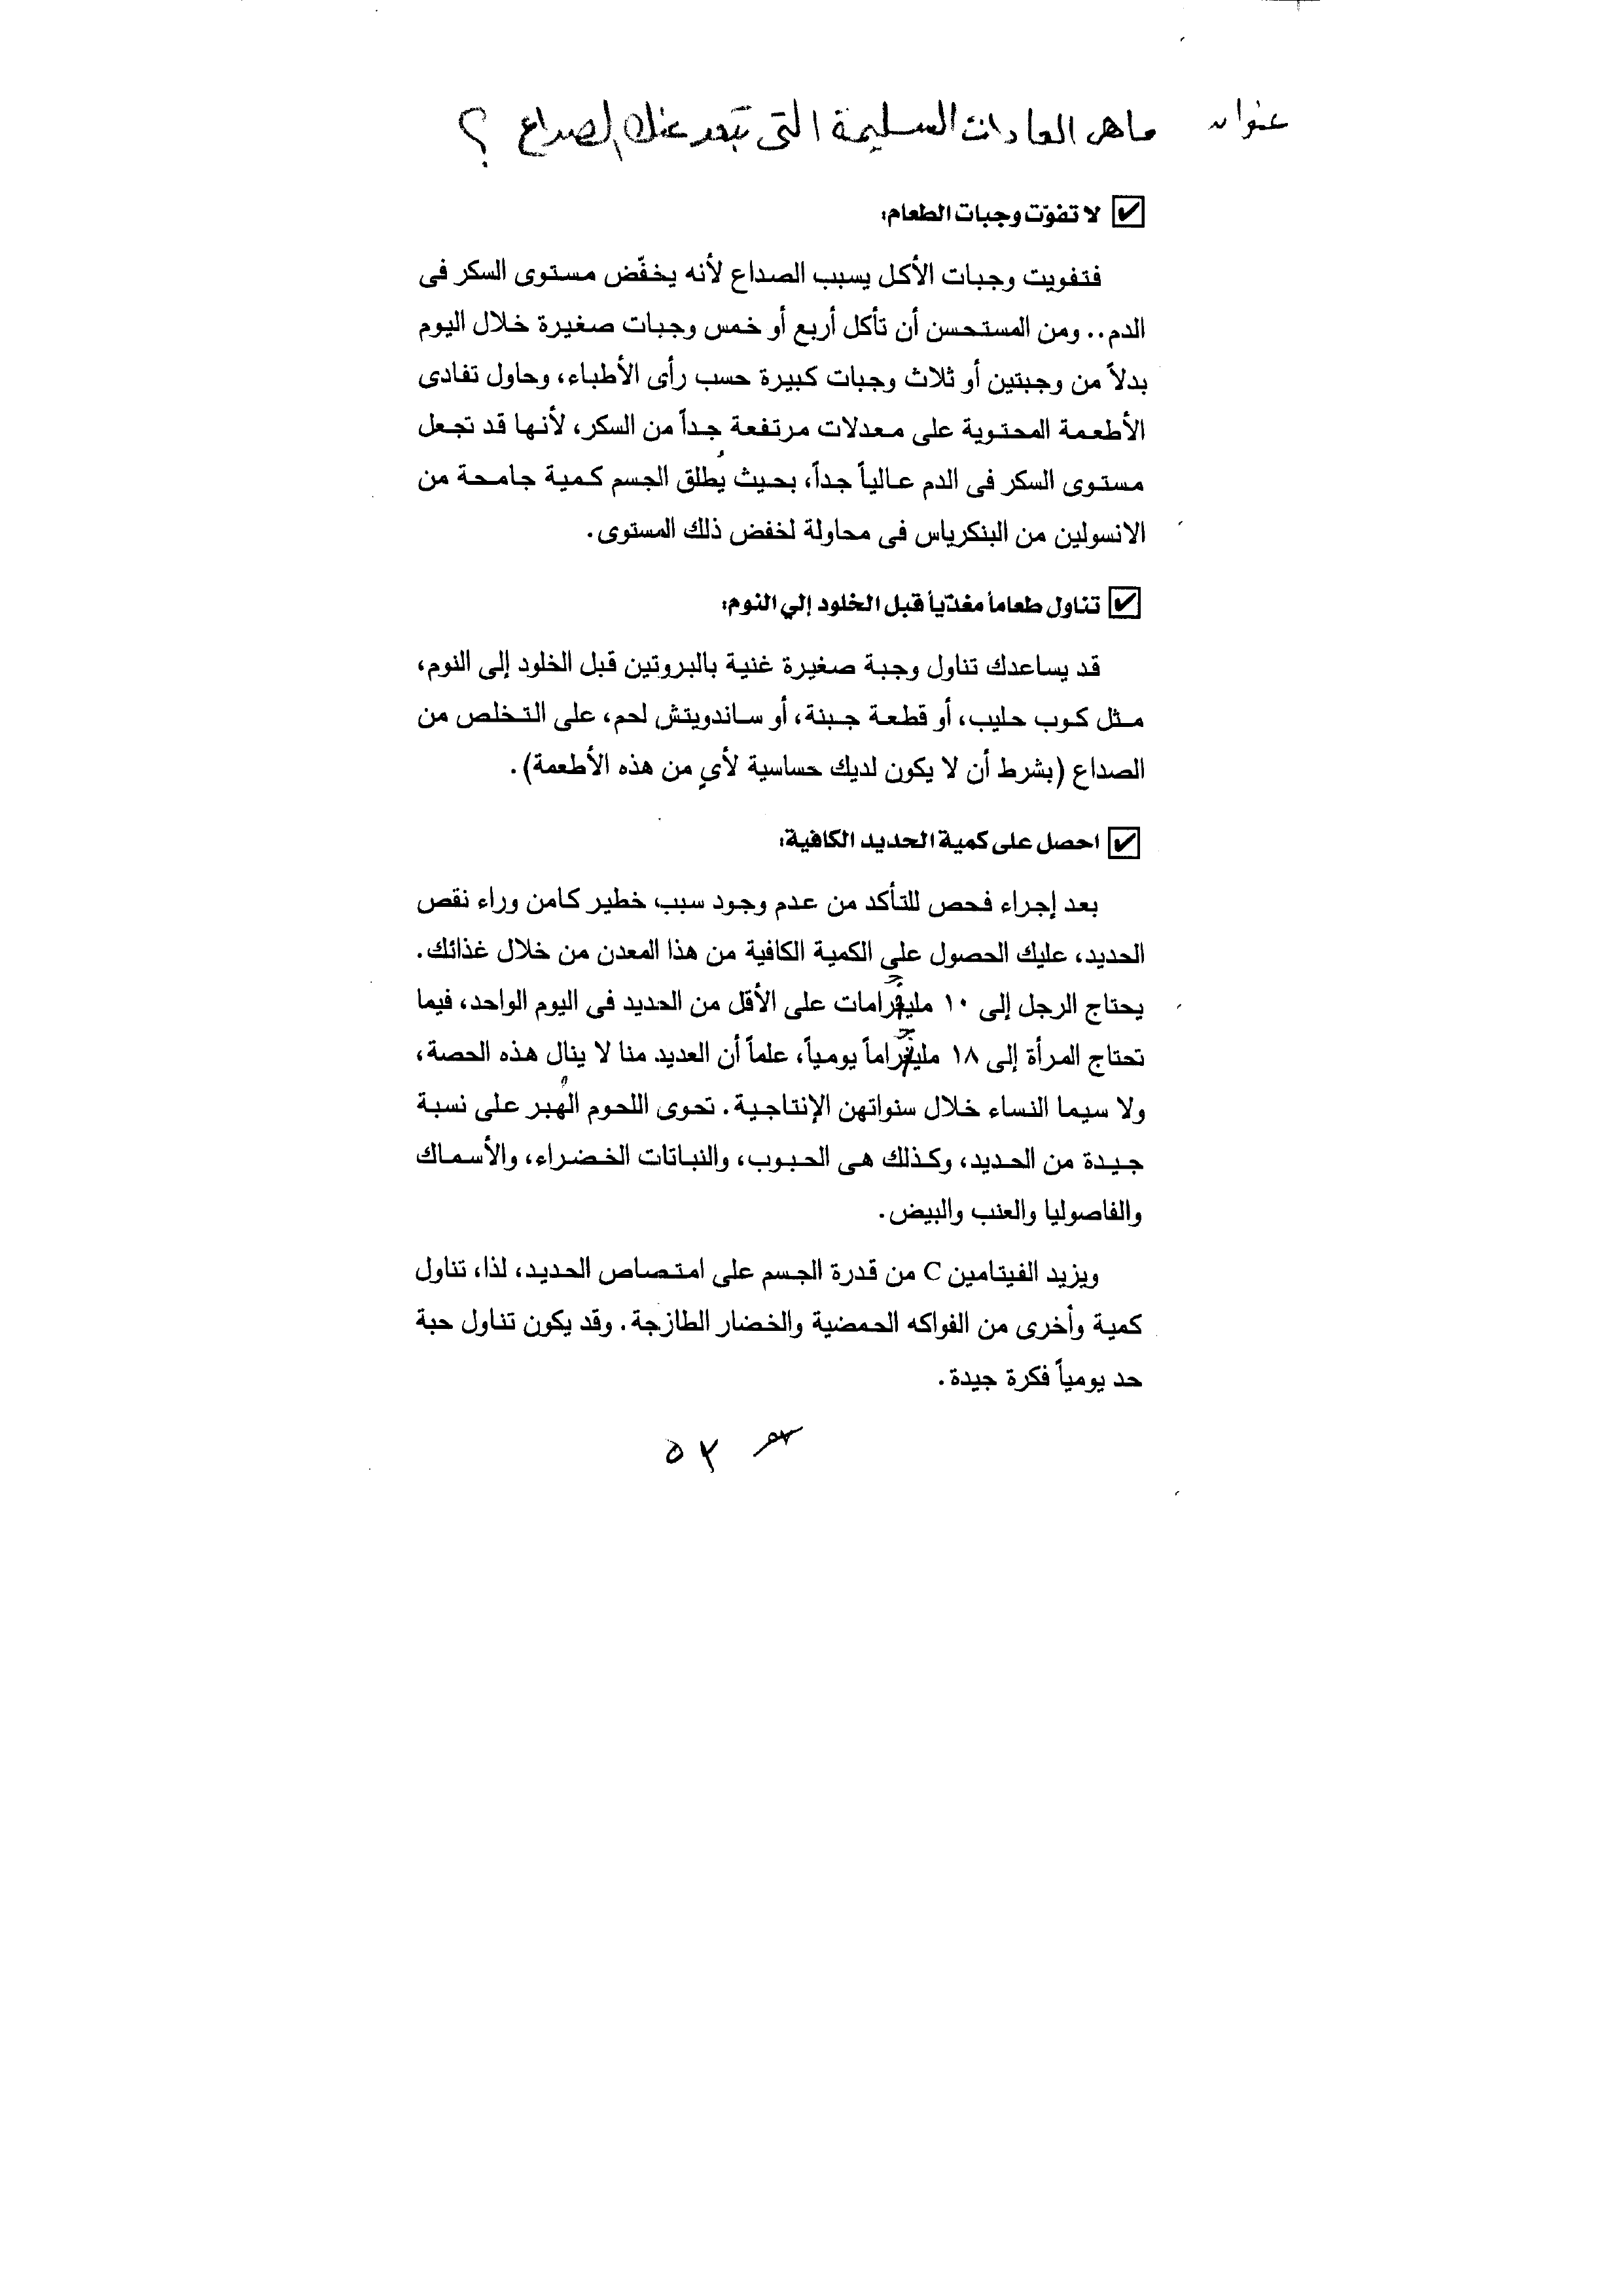 عنوان ما هى العادات السليمة التى تبعد عنك الصداع ؟
لا تفوّت وجبات الطعام:
فتفويت وجبات الأكل يسبب الصداع لأنه يخفّض مستوى السكر فى
الدم.. ومن المستحسن أن تأكل أربع أو خمس وجبات صغيرة خلال اليوم
بدلاً من وجبتين أو ثلاث وجبات كبيرة حسب رأى الأطباء، وحاول تفادى
الأطعمة المحتوية على معدلات مرتفعة جداً من السكر، لأنها قد تجعل
مستوى السكر فى الدم عالياً جداً، بحيث يُطلق الجسم كمية جامحة من
الانسولين من البنكرياس فى محاولة لخفض ذلك المستوى.
تناول طعاماً مغذّياً قبل الخلود إلي النوم:
قد يساعدك تناول وجبة صغيرة غنية بالبروتين قبل الخلود إلى النوم،
مثل كوب حليب، أو قطعة جبنة، أو ساندويتش لحم، على التخلص من
الصداع (بشرط أن لا يكون لديك حساسية لأيٍ من هذه الأطعمة).
احصل على كمية الحديد الكافية:
بعد إجراء فحص للتأكد من عدم وجود سبب خطير كامن وراء نقص
الحديد، عليك الحصول على الكمية الكافية من هذا المعدن من خلال غذائك.
يحتاج الرجل إلى ١٠ مليجرامات على الأقل من الحديد فى اليوم الواحد، فيما
تحتاج المرأة إلى ١٨ مليجراماً يومياً، علماً أن العديد منا لا ينال هذه الحصة،
ولا سيما النساء خلال سنواتهن الإنتاجية. تحوى اللحوم الهُبر على نسبة
جيدة من الحديد، وكذلك هى الحبوب، والنباتات الخضراء، والأسماك
والفاصوليا والعنب والبيض.
ويزيد الفيتامين C من قدرة الجسم على امتصاص الحديد، لذا، تناول
كمية وأخرى من الفواكه الحمضية والخضار الطازجة. وقد يكون تناول حبة
حد يومياً فكرة جيدة.
٥٢